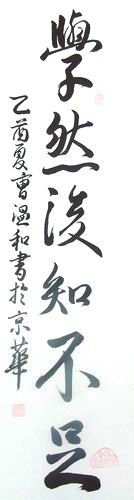 學然後知不足
乙酉夏曹温和書於京華